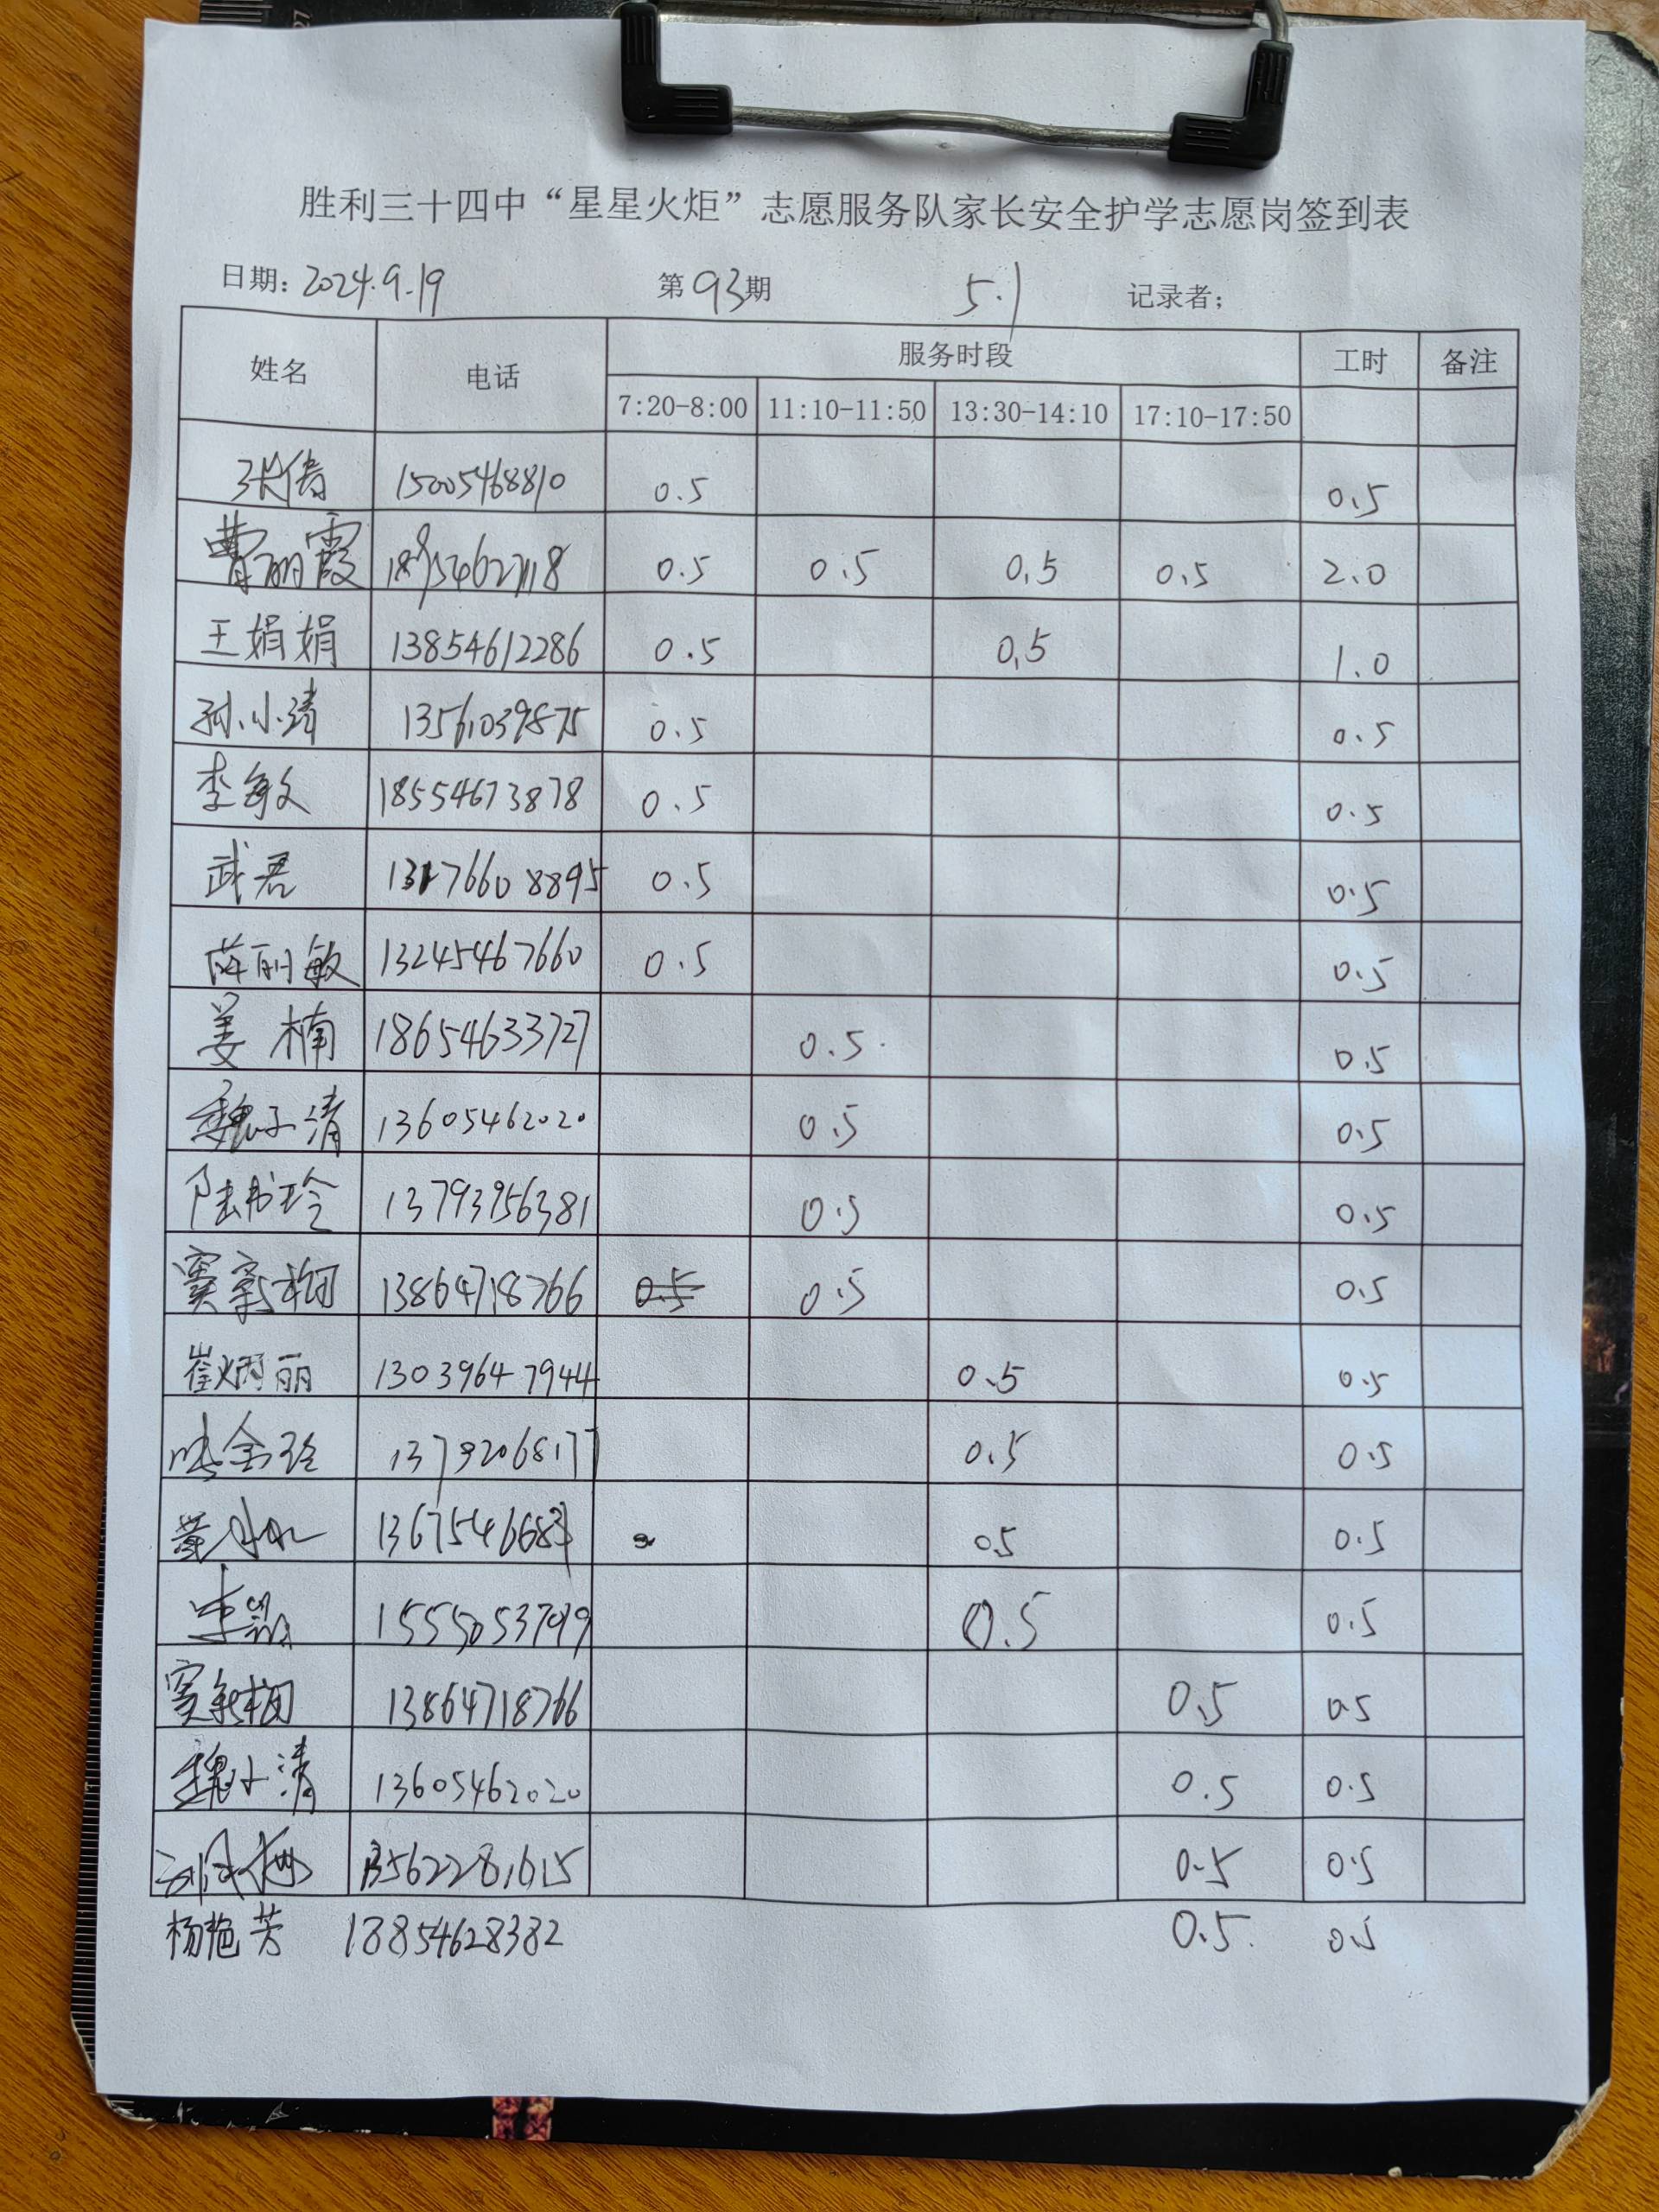 胜利三十四中“星星火炬”志愿服务队家长安全护学志愿岗签到表
日期: 2024.9.19 第93期 5.1 记录者;
姓名 电话 服务时段 工时 备注
7:20-8:00 11:10-11:50 13:30-14:10 17:10-17:50
张倩 15005468810 0.5 0.5
曹丽霞 0.5 0.5 0.5 0.5 2.0
王娟娟 13854612286 0.5 0.5 1.0
孙小清 13561039875 0.5 0.5
李敏 18554673878 0.5 0.5
武君 13176608895 0.5 0.5
薛丽敏 13245467660 0.5 0.5
姜楠 18654633727 0.5 0.5
魏子清 13605462020 0.5 0.5
陆书玲 13793956381 0.5 0.5
窦新梅 13864718766 0.5 0.5 0.5
崔炳丽 13039647944 0.5 0.5
金玲 13792068177 0.5 0.5
黄 0.5 0.5
李 0.5 0.5
窦新梅 13864718766 0.5 0.5
魏子清 13605462020 0.5 0.5
13562281615 0.5 0.5
杨艳芳 18854628382 0.5 0.5